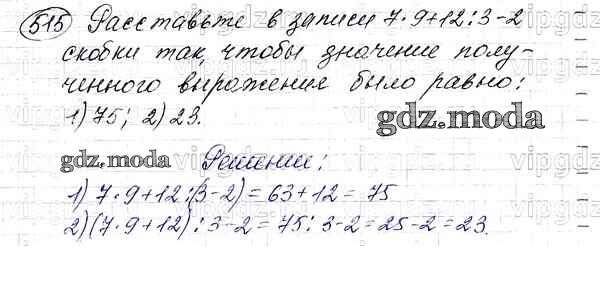 515 Расставьте в записи 7·9+12:3-2
скобки так, чтобы значение полу-
ченного выражения было равно:
1) 75; 2) 23.
gdz.moda
gdz.moda Решение:
1) 7·9+12:(3-2)=63+12=75
2) (7·9+12):3-2=75:3-2=25-2=23.